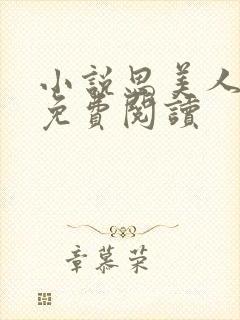 小說思美人
免費閱讀
章慕荣